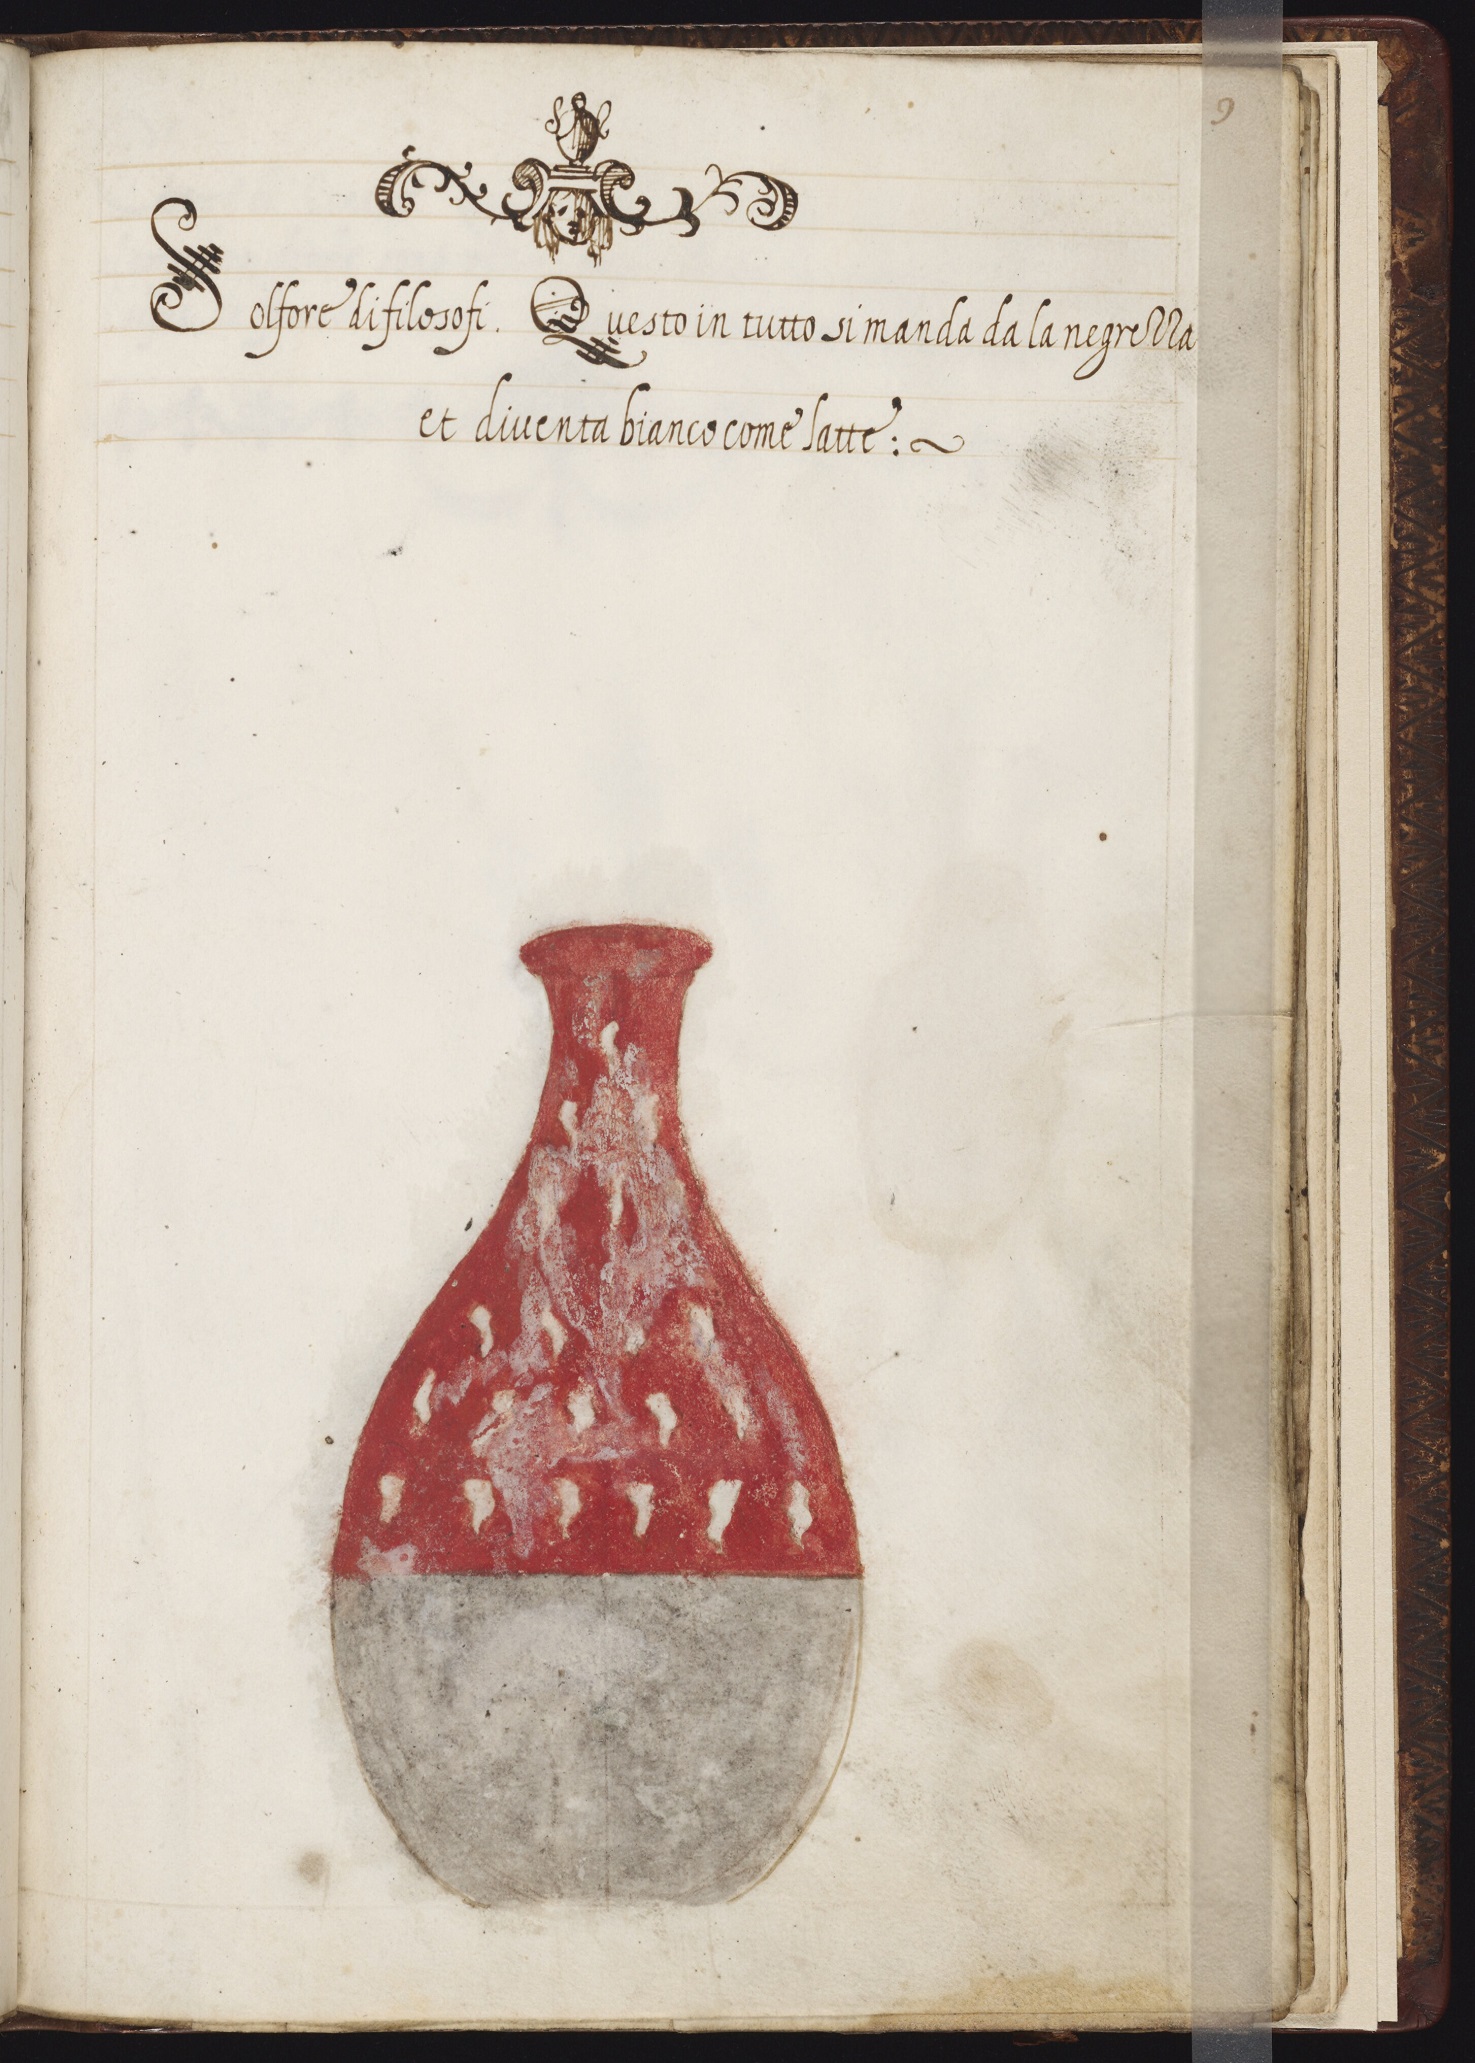 9
Solfore di filosofi. Questo in tutto si manda da la negrezza
et diuenta bianco come latte: ~